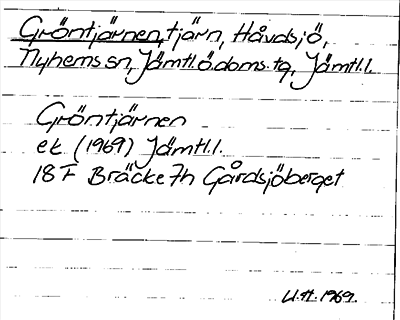 Gröntjärnen, tjärn, Håvdsjö,
Nyhems sn, Jämtl.ö.doms.tg, Jämtl.l.
Gröntjärnen
ek (1969) Jämtl.l.
18 F Bräcke 7h Gårdsjöberget
U.H. 1969.